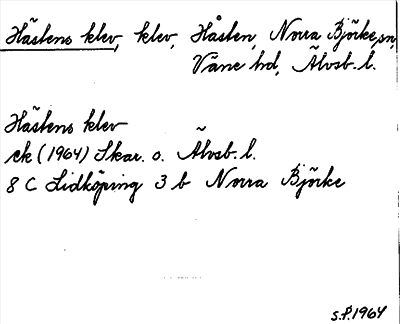 Håstens klev, klev, Håsten, Norra Björke sn,
Väne hd, Älvsb. l.
Håstens klev
ek (1964) Skar. o. Älvsb. l.
8 C Lidköping 3 b Norra Björke
S.P. 1964